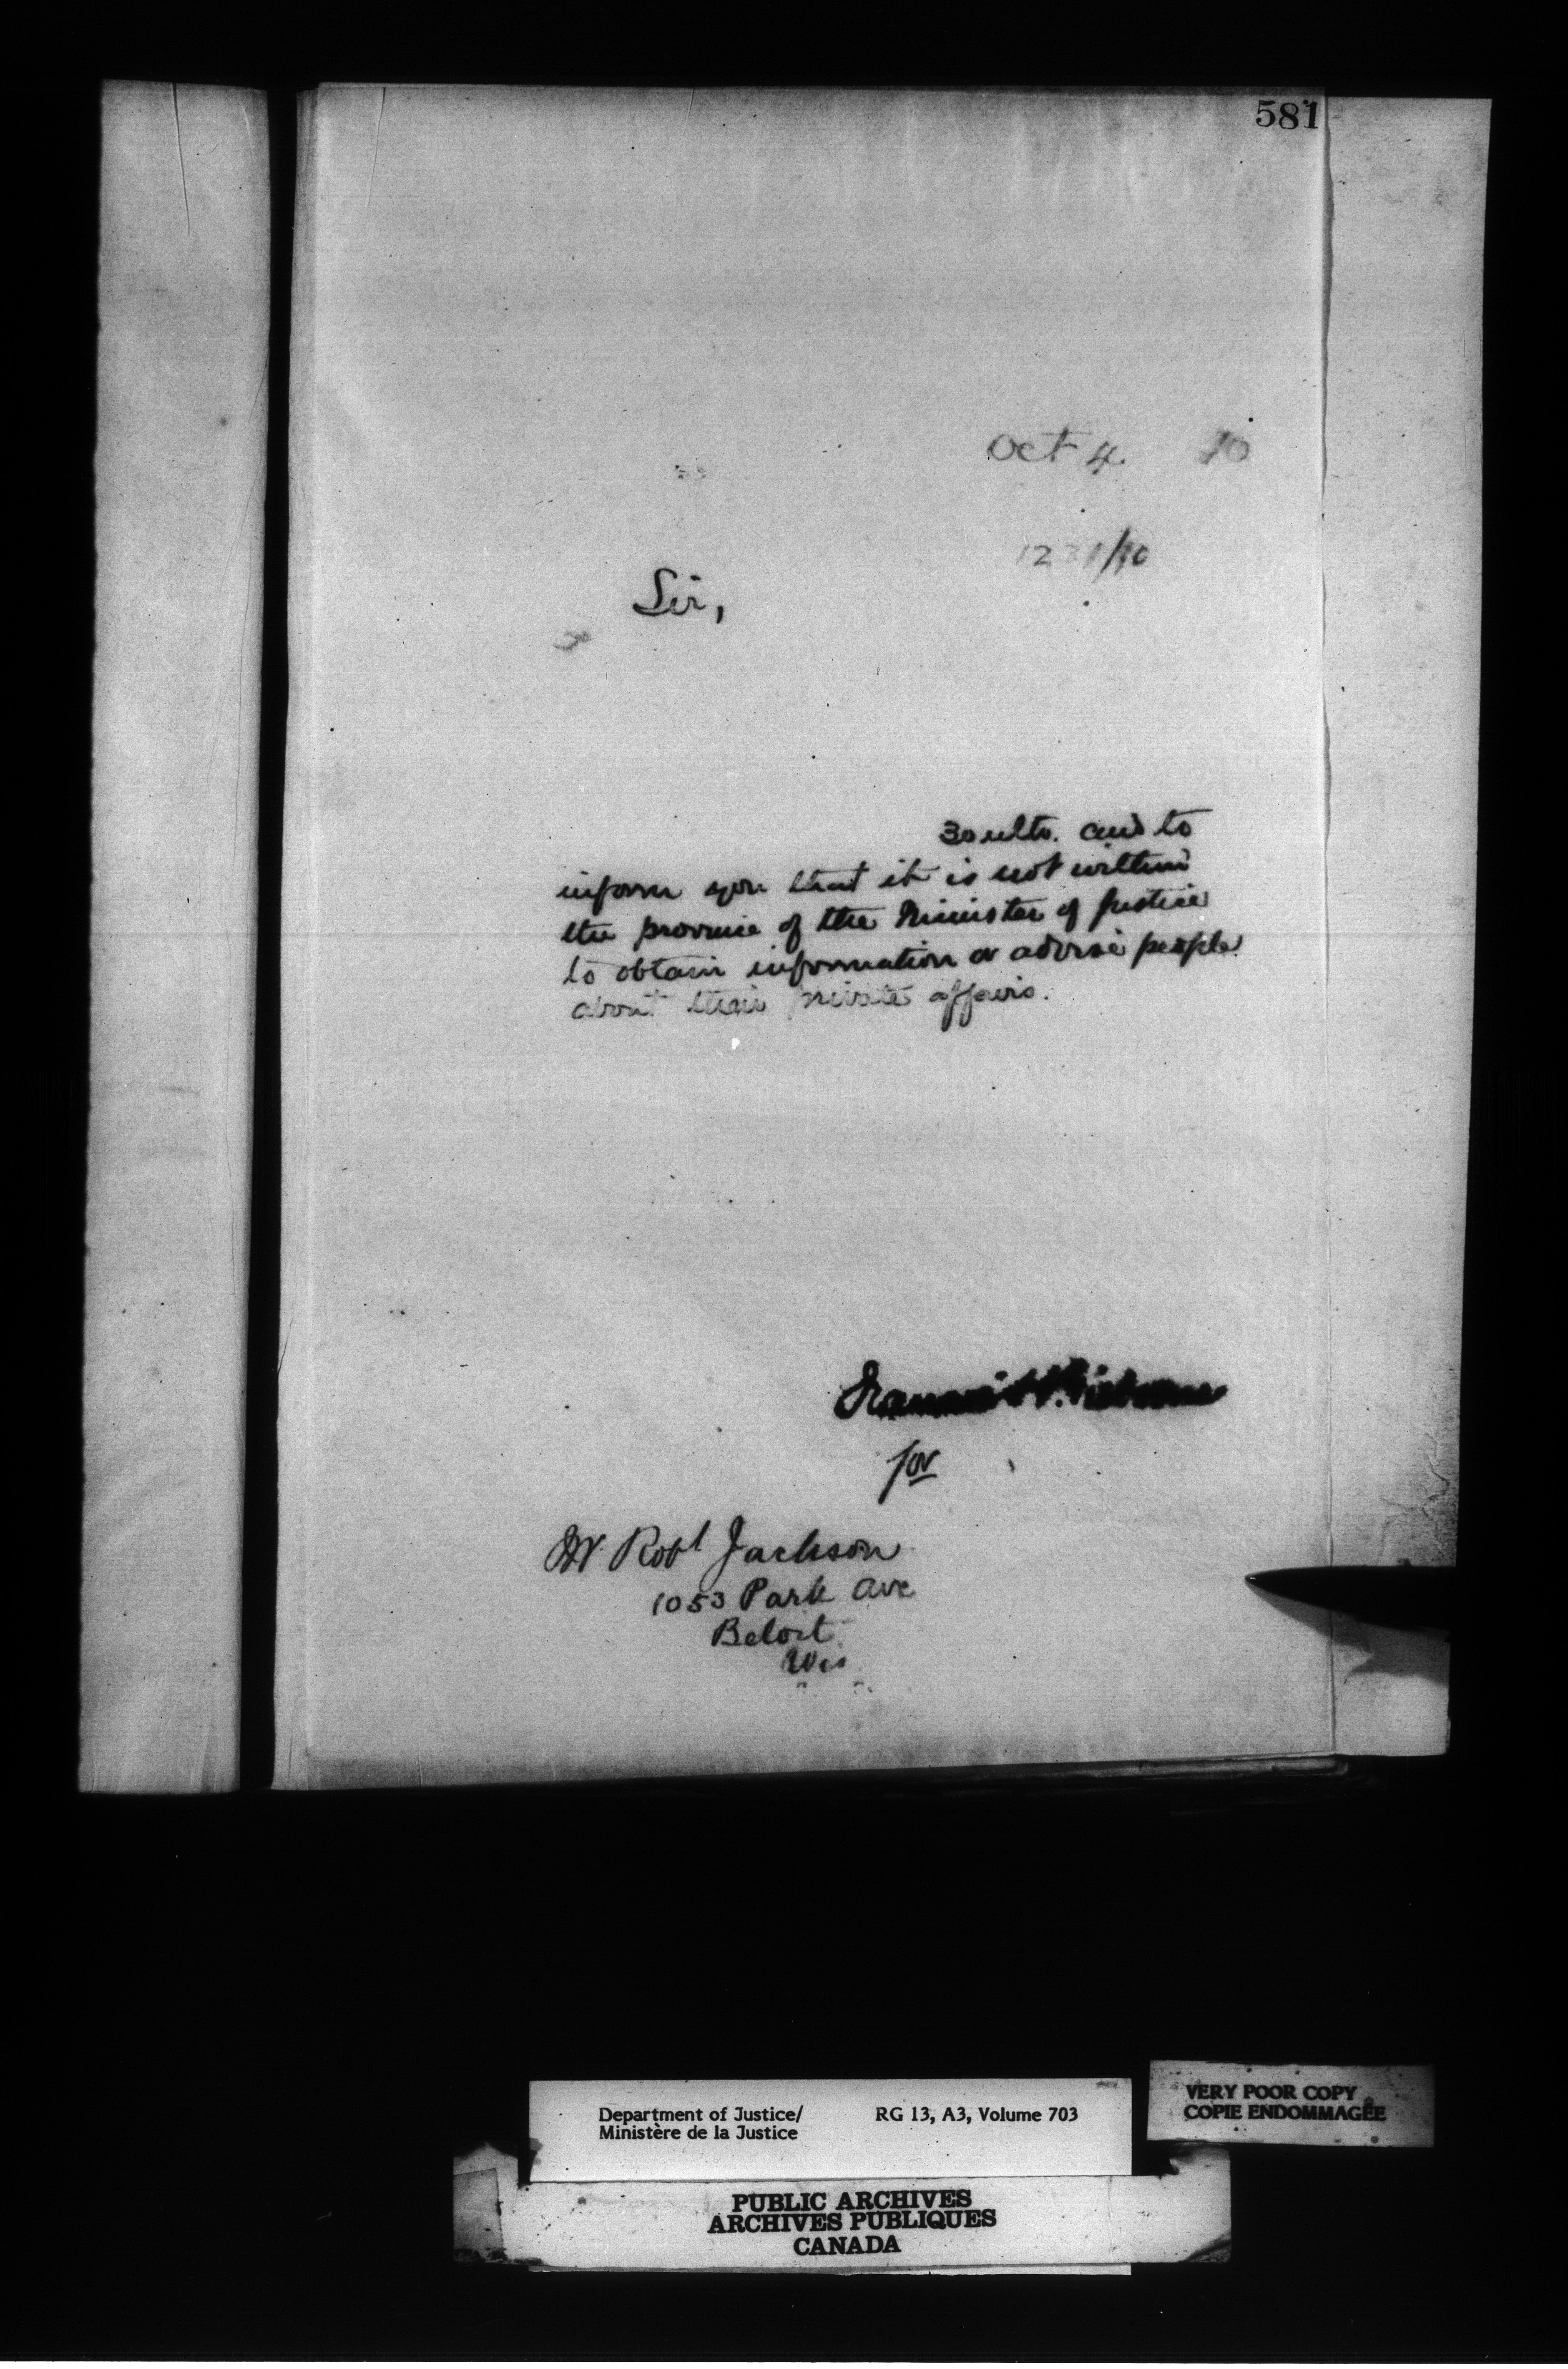 581
Oct 4 10
/10
Sir,
30 ulto. and to
inform you that it is not within
the province of the Minister of Justice
to obtain information or advise people
about their private affairs.
for
Mr Robt Jackson
1053 Park Ave
Beloit
Wis
Department of Justice/ RG 13, A3, Volume 703
Ministère de la Justice
VERY POOR COPY
COPIE ENDOMMAGÊE
PUBLIC ARCHIVES
ARCHIVES PUBLIQUES
CANADA